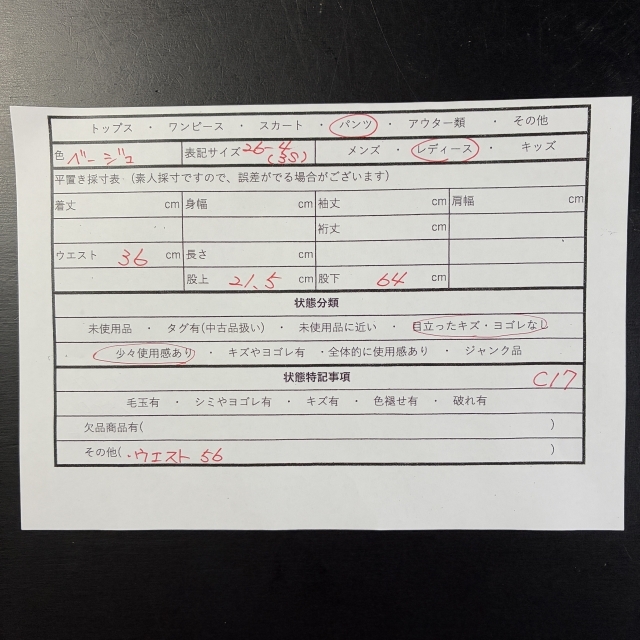 トップス ・ ワンピース ・ スカート ・ パンツ ・ アウター類 ・ その他
色 ベージュ 表記サイズ 26-4 (3S) メンズ ・ レディース ・ キッズ
平置き採寸表（素人採寸ですので、誤差がでる場合がございます）
着丈 cm 身幅 cm 袖丈 cm 肩幅 cm
裄丈 cm
ウエスト 36 cm 長さ cm
股上 21.5 cm 股下 64 cm
状態分類
未使用品 ・ タグ有(中古品扱い) ・ 未使用品に近い ・ 目立ったキズ・ヨゴレなし
少々使用感あり ・ キズやヨゴレ有 ・全体的に使用感あり ・ ジャンク品
状態特記事項 C17
毛玉有 ・ シミやヨゴレ有 ・ キズ有 ・ 色褪せ有 ・ 破れ有
欠品商品有( )
その他( ・ウエスト 56 )